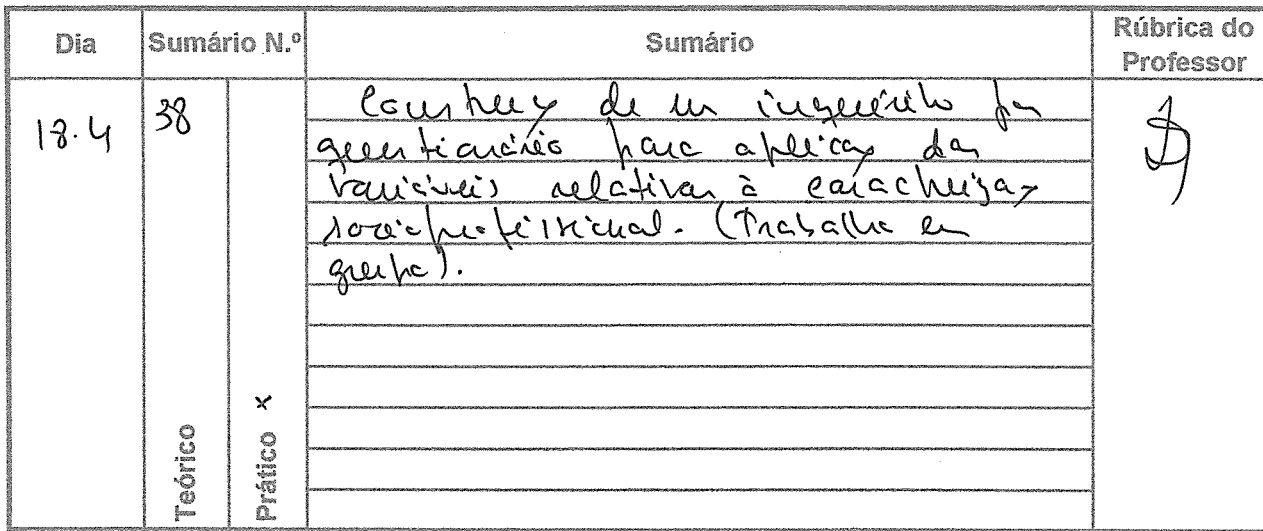 Dia Sumário N.º Sumário Rúbrica do Professor
18.4 38 Construç de um inquérito por
questionário para aplicaç das
variáveis relativas à caracterizaç
socioprofissional. (Trabalho em
grupo).
Teórico
Prático x